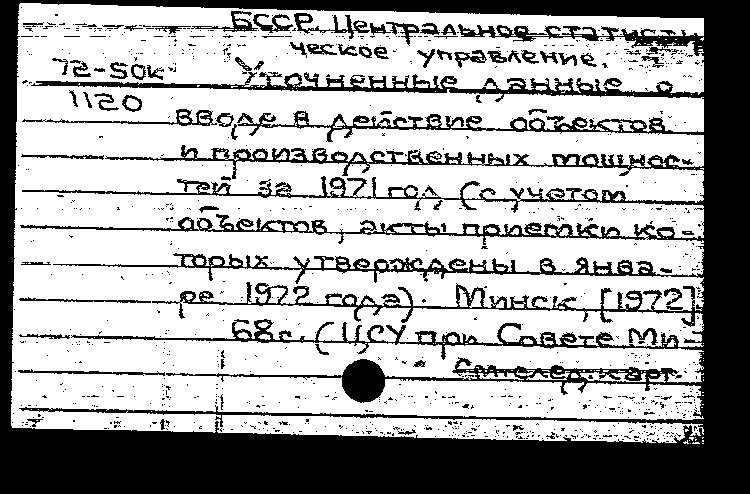 БССР. Центральное статисти
ческое управление.
72-50к Уточненные данные о
1120
вводе в действие объектов
и производственных мощнос-
тей за 1971 год (с учетом
объектов, акты приемки ко-
торых утверждены в янва-
ре 1972 года). Минск, [1972].
68с. (ЦСУ при Совете Ми-
См.след.карт.